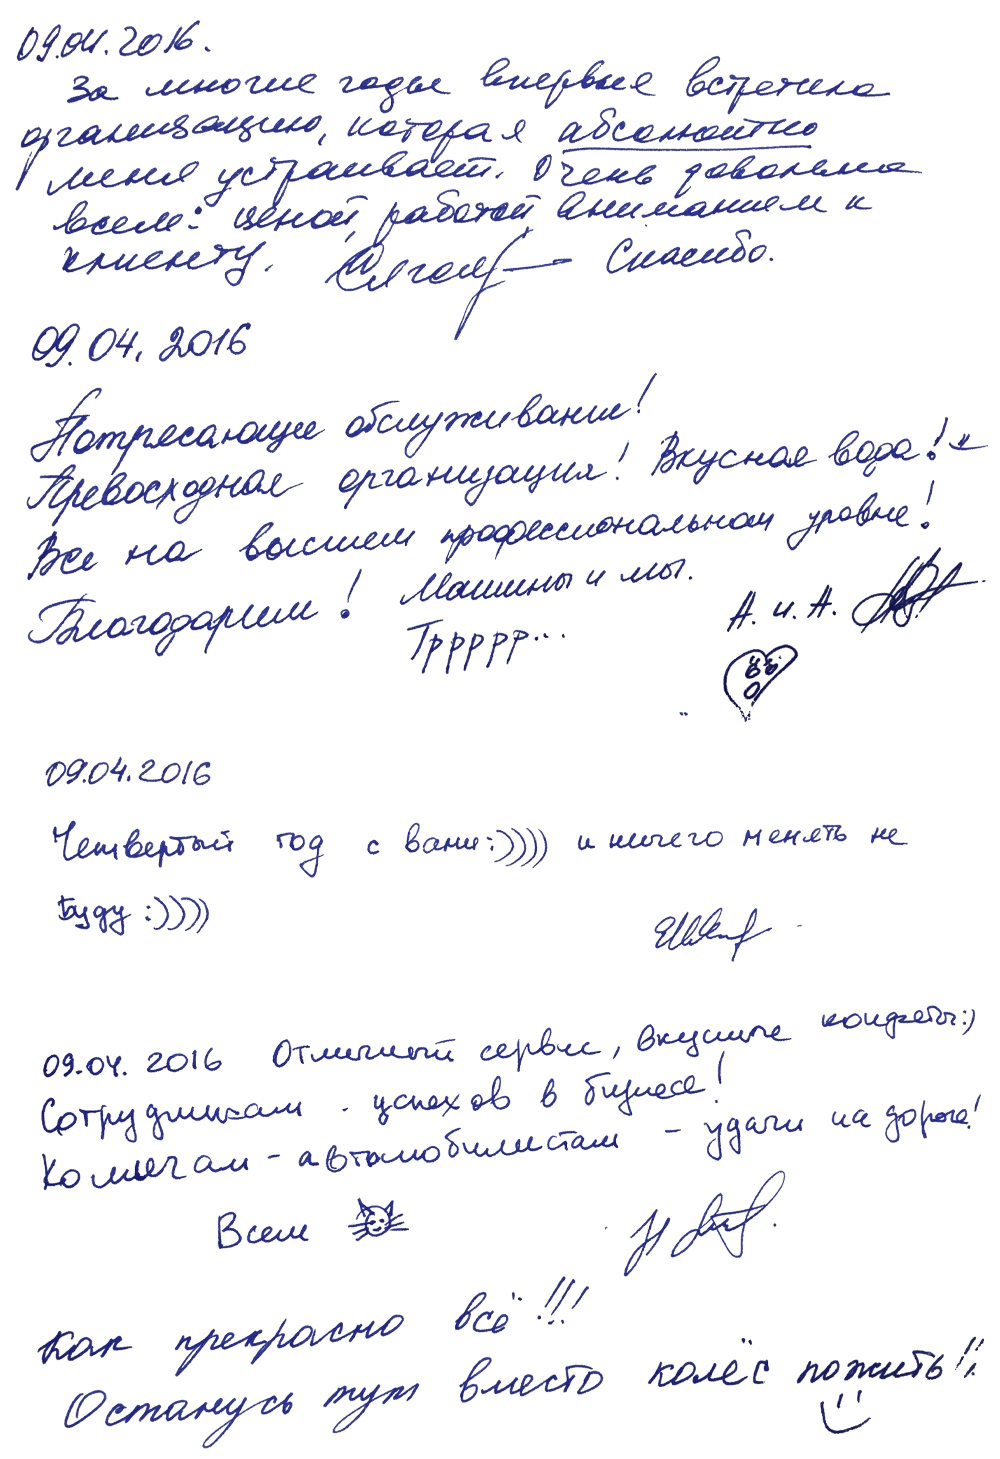 09.04.2016.
За многие годы впервые встретила
организацию, которая абсолютно
меня устраивает. Очень довольна
всем: ценой, работой вниманием к
клиенту. Спасибо.
09.04.2016
Потрясающие обслуживание!
Превосходная организация! Вкусная вода!
Все на высшем профессиональном уровне!
Благодарим! Машины и мы.
Тррррр...
А. и А.
09.04.2016
Четвертый год с вами:)))) и ничего менять не
буду :))))
09.04.2016 Отличный сервис, вкусные конфеты:)
Сотрудникам - успехов в бизнесе!
Коллегам - автомобилистам - удачи на дороге!
Всем
Как прекрасно всё!!!
Останусь тут вместо колёс пожить!!